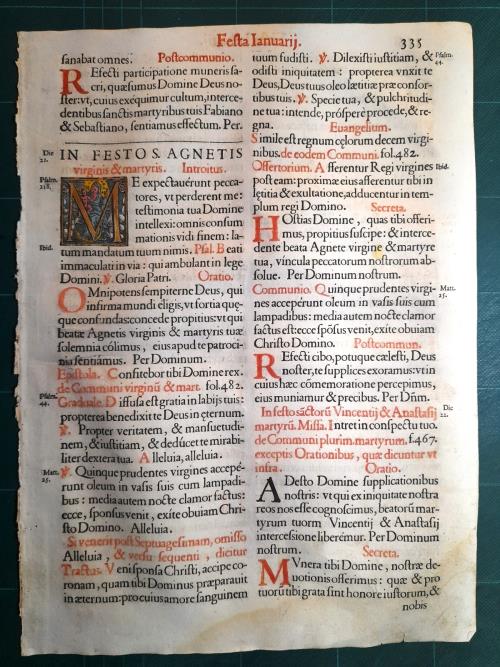 Festa Ianuarij.
335
sanabat omnes. Postcommunio.
REfecti participatione muneris sa-
cri, quæsumus Domine Deus no-
ster: vt, cuius exequimur cultum, interce-
dentibus sanctis martyribus tuis Fabiano
& Sebastiano, sentiamus effectum. Per.
Die 21.
IN FESTO S. AGNETIS
virginis & martyris. Introitus.
Psalm. 118.
ME expectauerunt pecca-
tores, vt perderent me:
testimonia tua Domine
intellexi: omnis consum-
mationis vidi finem: la-
Ibid.
tum mandatum tuum nimis. Psal. Beati
immaculati in via: qui ambulant in lege
Domini. ℣. Gloria Patri. Oratio.
OMnipotens sempiterne Deus, qui
infirma mundi eligis, vt fortia quę-
que confundas: concede propitius: vt qui
beatæ Agnetis virginis & martyris tuæ
solemnia cólimus, eius apud te patroci-
nia sentiámus. Per Dominum.
Epistola. Confitebor tibi Domine rex.
de Communi virginū & mart. fol. 482.
Psalm. 44.
Graduale. Diffusa est gratia in labijs tuis:
propterea benedixit te Deus in ęternum.
℣. Propter veritatem, & mansuetudi-
nem, & iustitiam, & deducet te mirabi-
liter dextera tua. Alleluia, alleluia.
Matt. 25.
℣. Quinque prudentes virgines accepé-
runt oleum in vasis suis cum lampadi-
bus: media autem nocte clamor factus:
ecce, sponsus venit, exite obuiam Chri-
sto Domino. Alleluia.
Si venerit post Septuagesimam, omisso
Alleluia, & versu sequenti, dicitur
Tractus. Veni sponsa Christi, accipe co-
ronam, quam tibi Dominus præparauit
in æternum: pro cuius amore sanguinem
tuum fudisti. ℣. Dilexisti iustitiam, &
Psalm. 44.
odisti iniquitatem: propterea vnxit te
Deus, Deus tuus oleo lætitiæ præ consor-
tibus tuis. ℣. Specie tua, & pulchritudi-
ne tua: intende, prósperè procede, & re-
gna. Euangelium.
Simile est regnum cęlorum decem virgi-
nibus. de eodem Communi. fol. 482.
Offertorium. Afferentur Regi virgines
Ibid.
post eam: proximæ eius afferentur tibi in
lętitia & exultatione, adducentur in tem-
plum regi Domino. Secreta.
HOstias Domine, quas tibi offeri-
mus, propitius suscipe: & interce-
dente beata Agnete virgine & martyre
tua, víncula peccatorum nostrorum ab-
solue. Per Dominum nostrum.
Communio. Quinque prudentes virgi-
Matt. 25.
nes accepérunt oleum in vasis suis cum
lampadibus: media autem nocte clamor
factus est: ecce spōsus venit, exite obuiam
Christo Domino. Postcommun.
REfecti cibo, potuque cælesti, Deus
noster, te supplices exoramus: vt in
cuius hæc cómemoratione percepimus,
eius muniamur & precibus. Per Dn̄m.
In festo sāctorū Vincentij & Anastasij
Die 22.
martyrū. Missa. Intret in conspectu tuo.
de Communi plurim. martyrum. f. 467.
exceptis Orationibus, quæ dicuntur vt
infra. Oratio.
ADesto Domine supplicationibus
nostris: vt qui ex iniquitate nostra
reos nos esse cognoscimus, beatorū mar-
tyrum tuorm Vincentij & Anastasij
intercessione liberémur. Per Dominum
nostrum. Secreta.
MVnera tibi Domine, nostræ de-
uotionis offerimus: quæ & pro
tuorū tibi grata sint honore iustorum, &
nobis